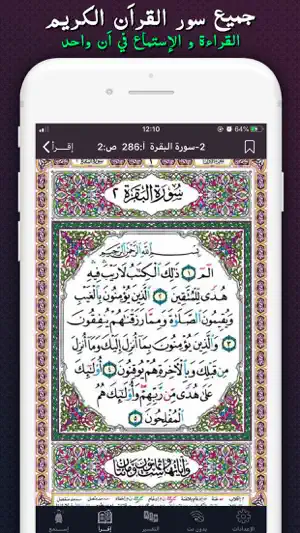 جميع سور القرآن الكريم
القراءة و الإستماع في آن واحد
12:10
64%
2-سورة البقرة أ:286 ص:2
إقرأ
سُورَةُ البَقَرَةِ ٢
بِسْمِ اللَّهِ الرَّحْمَنِ الرَّحِيمِ
الٓمٓ ١ ذَٰلِكَ ٱلْكِتَٰبُ لَا رَيْبَ فِيهِ
هُدًى لِّلْمُتَّقِينَ ٢ ٱلَّذِينَ يُؤْمِنُونَ بِٱلْغَيْبِ
وَيُقِيمُونَ ٱلصَّلَوٰةَ وَمِمَّا رَزَقْنَٰهُمْ يُنفِقُونَ
٣ وَٱلَّذِينَ يُؤْمِنُونَ بِمَآ أُنزِلَ إِلَيْكَ وَمَآ أُنزِلَ
مِن قَبْلِكَ وَبِٱلْءَاخِرَةِ هُمْ يُوقِنُونَ ٤ أُو۟لَٰٓئِكَ
عَلَىٰ هُدًى مِّن رَّبِّهِمْ وَأُو۟لَٰٓئِكَ هُمُ
ٱلْمُفْلِحُونَ ٥
الإعدادات
بدون نت
التفسير
إقرأ
إستمع